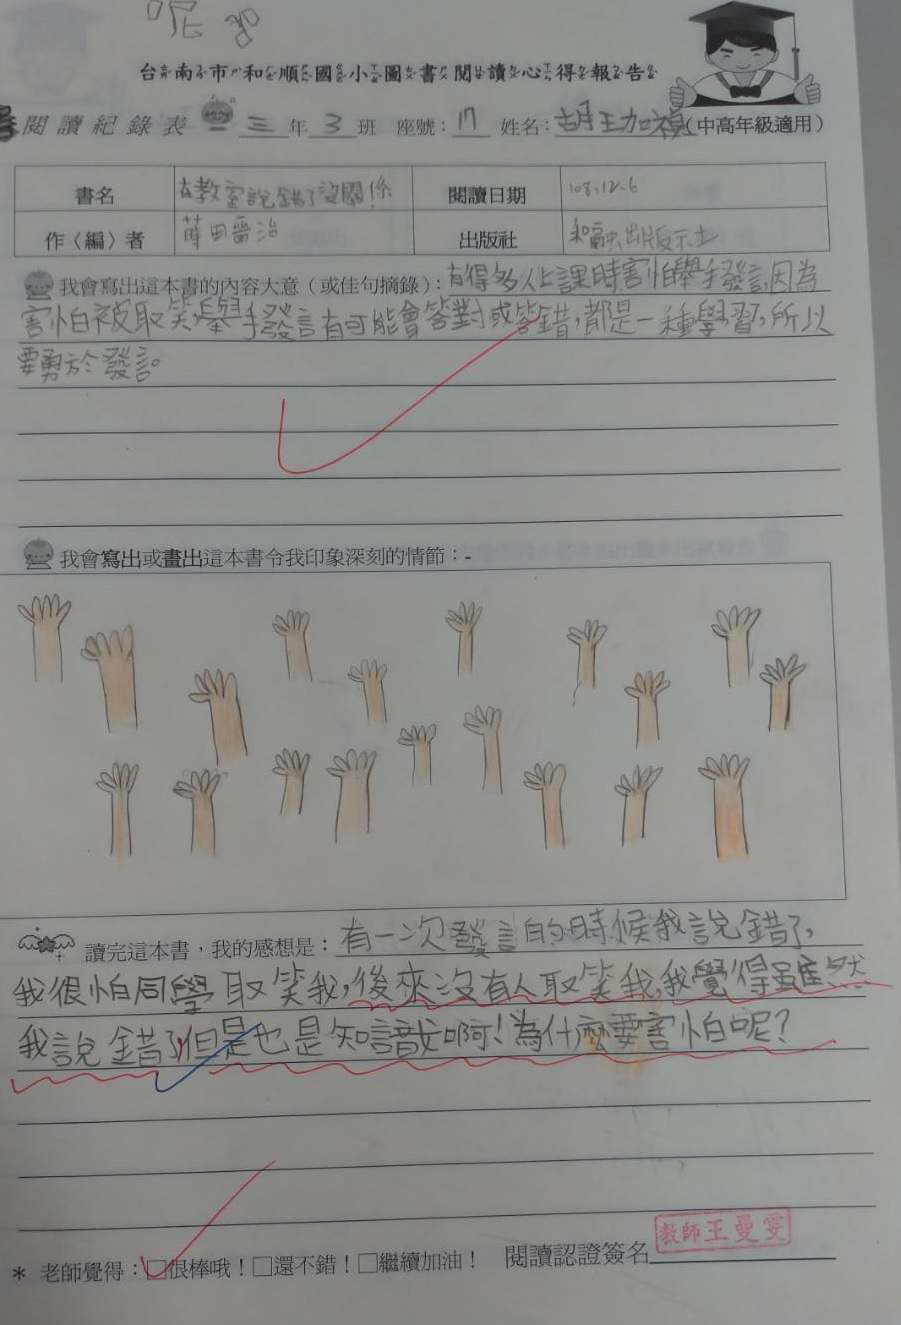 呢
台南市和順國小圖書閱讀心得報告
閱讀紀錄表 三年3班 座號:17 姓名:胡王加禎(中高年級適用)
書名 在教室說錯了沒關係! 閱讀日期 108.12.6
作〈編〉者 蒔田晋治 出版社 和融出版社
我會寫出這本書的內容大意(或佳句摘錄):有得多人上課時害怕舉手發言,因為
害怕被取笑,舉手發言有可能會答對或答錯,都是一種學習,所以
要勇於發言。
我會寫出或畫出這本書令我印象深刻的情節:-
讀完這本書,我的感想是:有一次發言的時候我說錯了,
我很怕同學取笑我,後來沒有人取笑我,我覺得雖然
我說錯了但是也是知識啊!為什麼要害怕呢?
* 老師覺得:□很棒哦!□還不錯!□繼續加油! 閱讀認證簽名
教師王曼雯